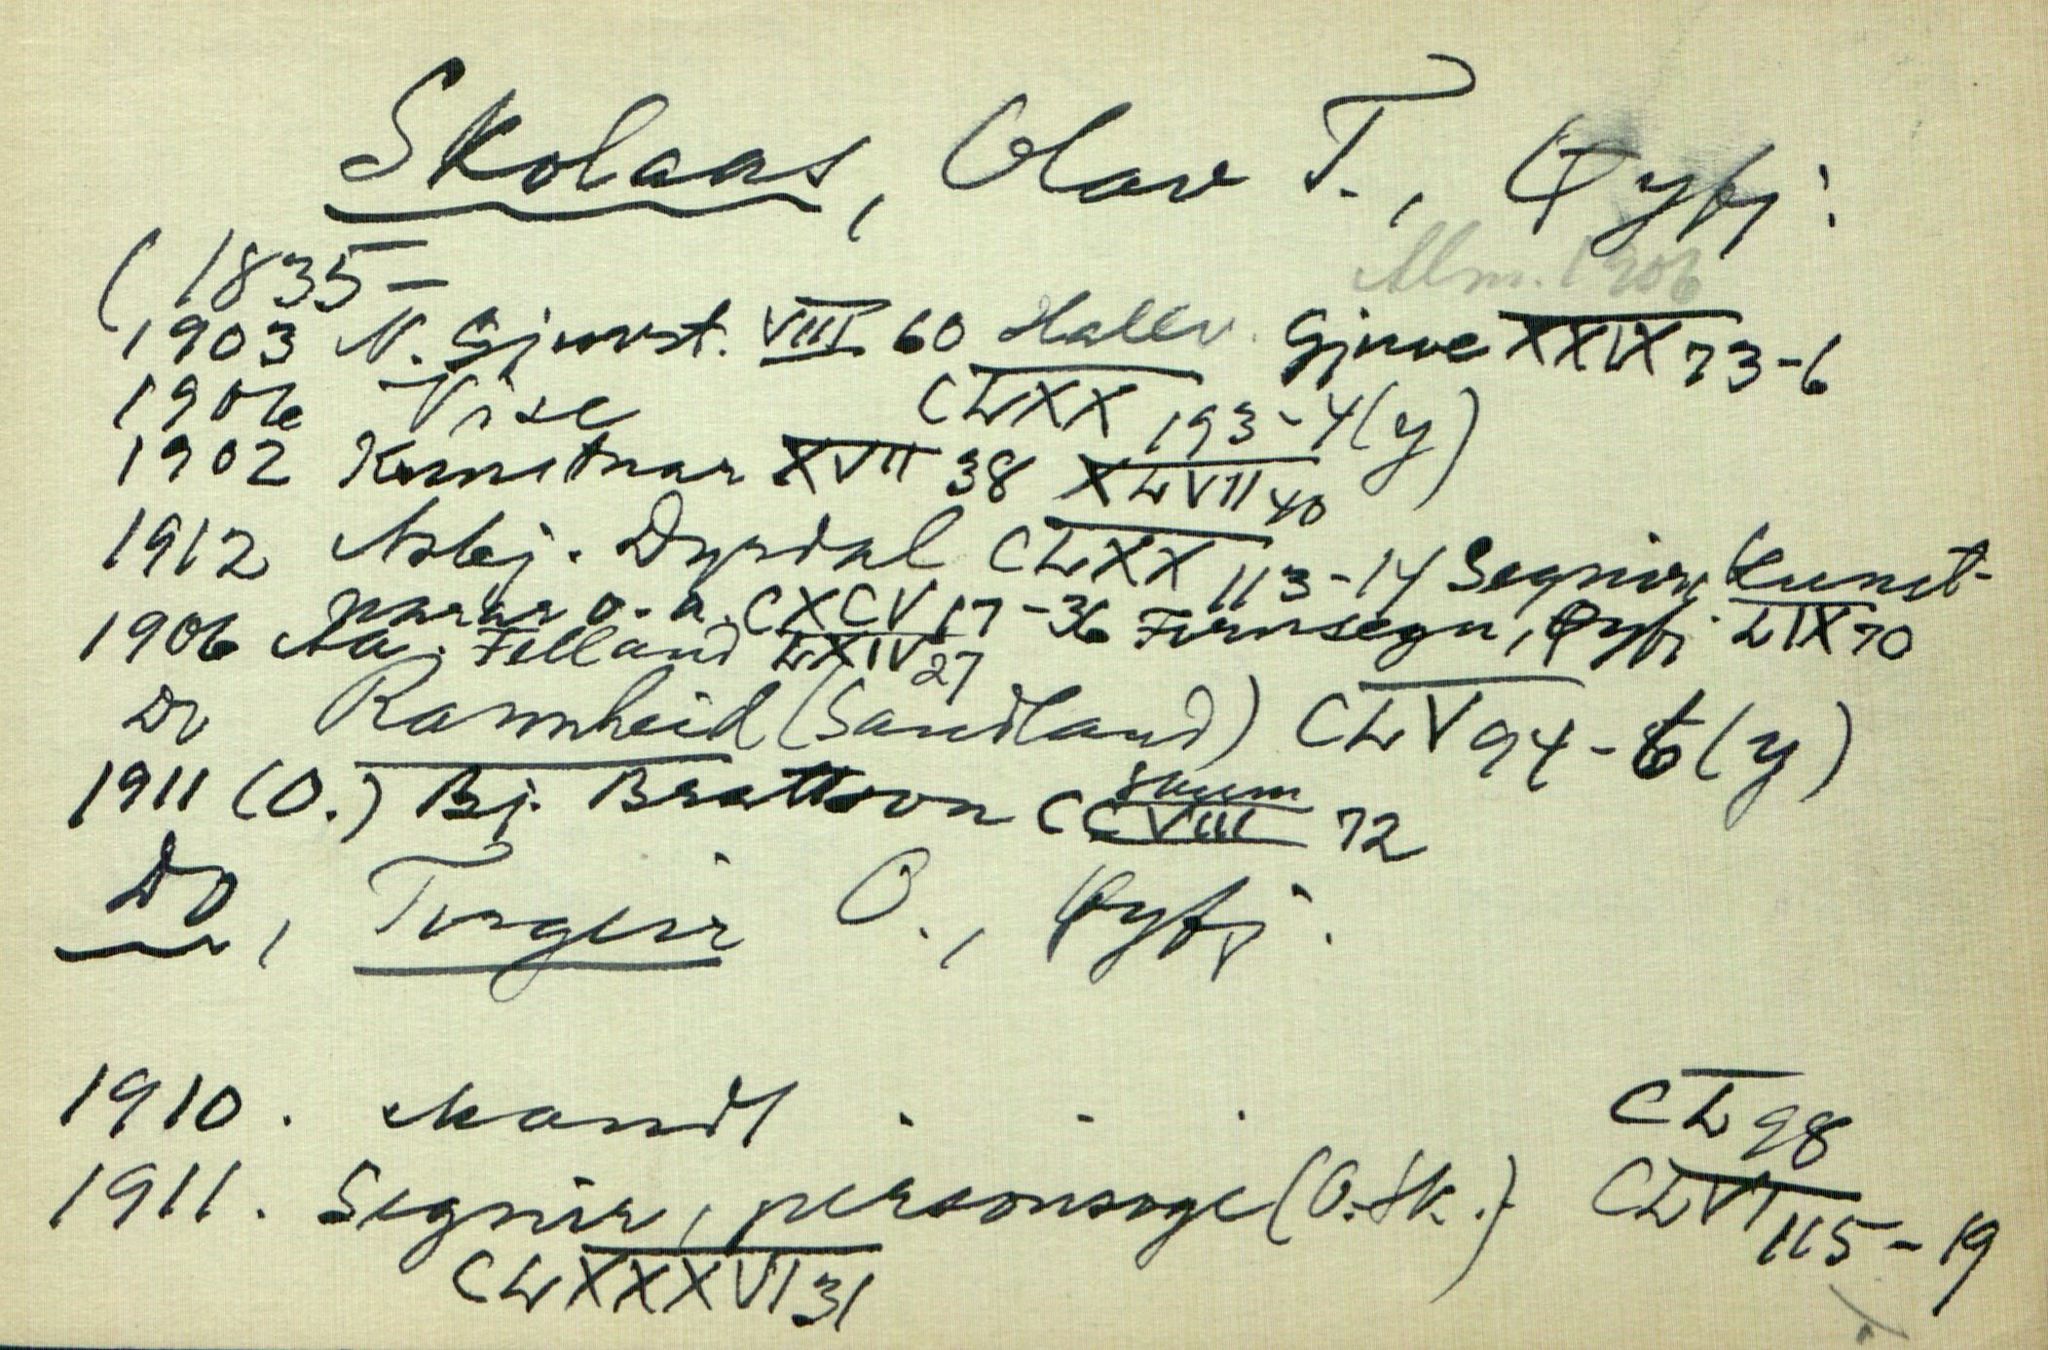 Skolaas, Olav T., Øyfj.
Alm. 1906
(1835-
1903 N. Gjuvst. VIII 60 Hallv. Gjuve XXIX 73-6
1906 Vise CLXX 193-4 (y)
1902 Kunstnar XVII 38 XLVII 40
1912 Asbj. Dyrdal CLXX 113-14 Segnir, kunst-
narar o.a. CXCV 17-36 Fornsegn, Øyfj. LIX 70
1906 Aa. Felland LXIV 27
Do Rannheid (Sandland) CLV 94-6 (y)
1911 (O.) Bj. Brattson CCVIII 72
Do, Torgeir O., Øyfj.
1910. CL 98
1911. Segnir, personsoge (O. Sk.) CLVI 115-19
CLXXXVI 31